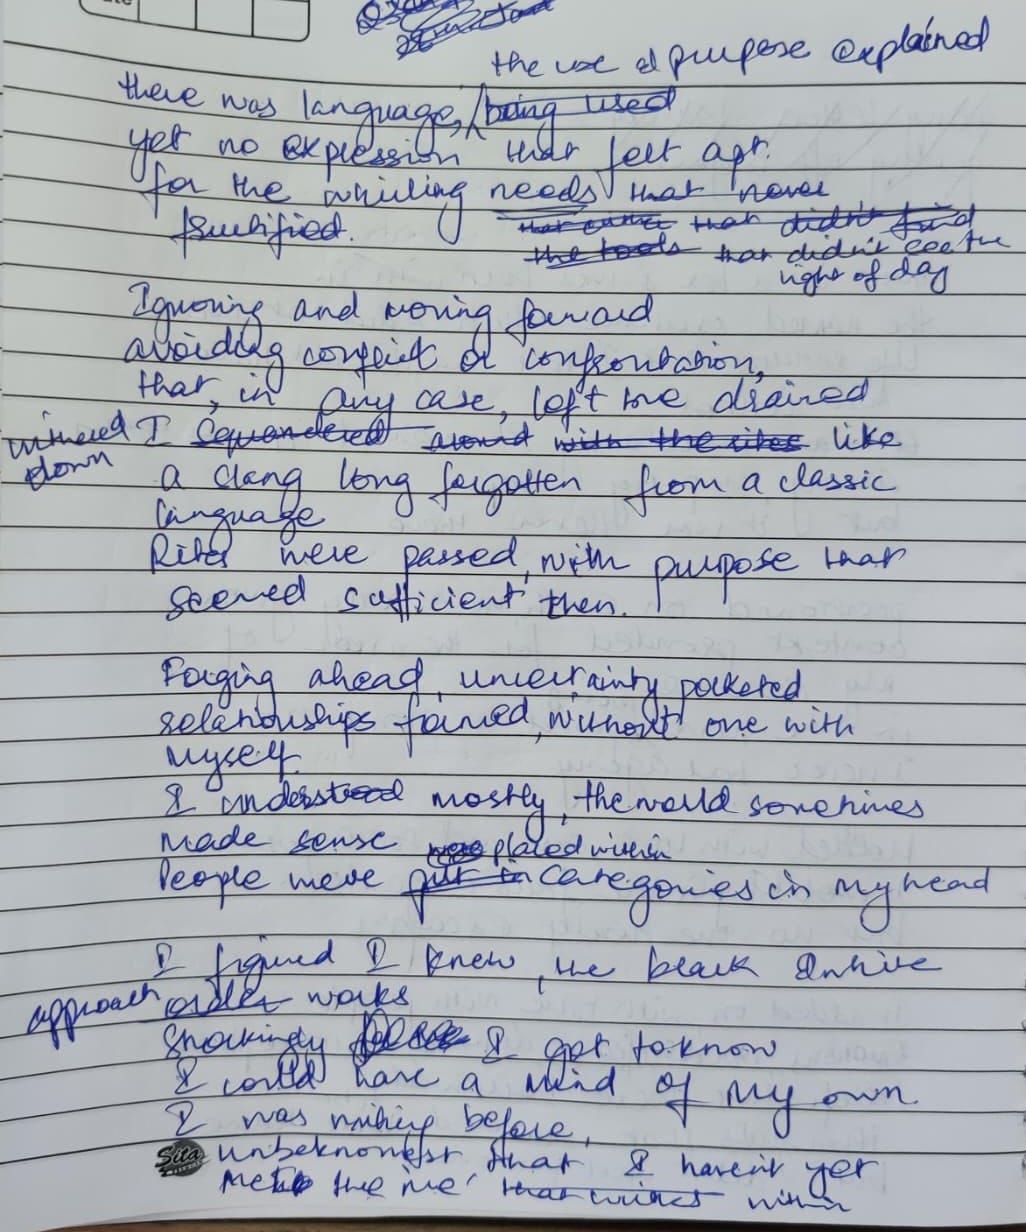 the use & purpose explained
there was language, being used
yet no expression that felt apt.
for the whirling needs that never
fruitified.
that didn't find
the tools that didn't see the
light of day
Ignoring and moving forward
avoiding conflict or confrontation,
that, in any case, left me drained
withered down I Squandered around with the rites like
a clang long forgotten from a classic
language
Rites were passed, with purpose that
seemed sufficient then.
Forging ahead, uncertainty pocketed
relationships formed, without one with
myself.
I understood mostly, the world sometimes
made sense
was placed within
People were put in categories in my head
I figured I knew, the black & white
approach order works
Shockingly I got to know
I could have a mind of my own
I was nothing before,
unbeknownst that I haven't yet
Sita
met the 'me' that within